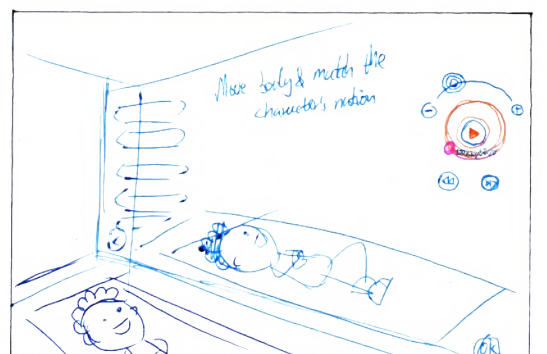 Move body & match the
character's motion
Ok